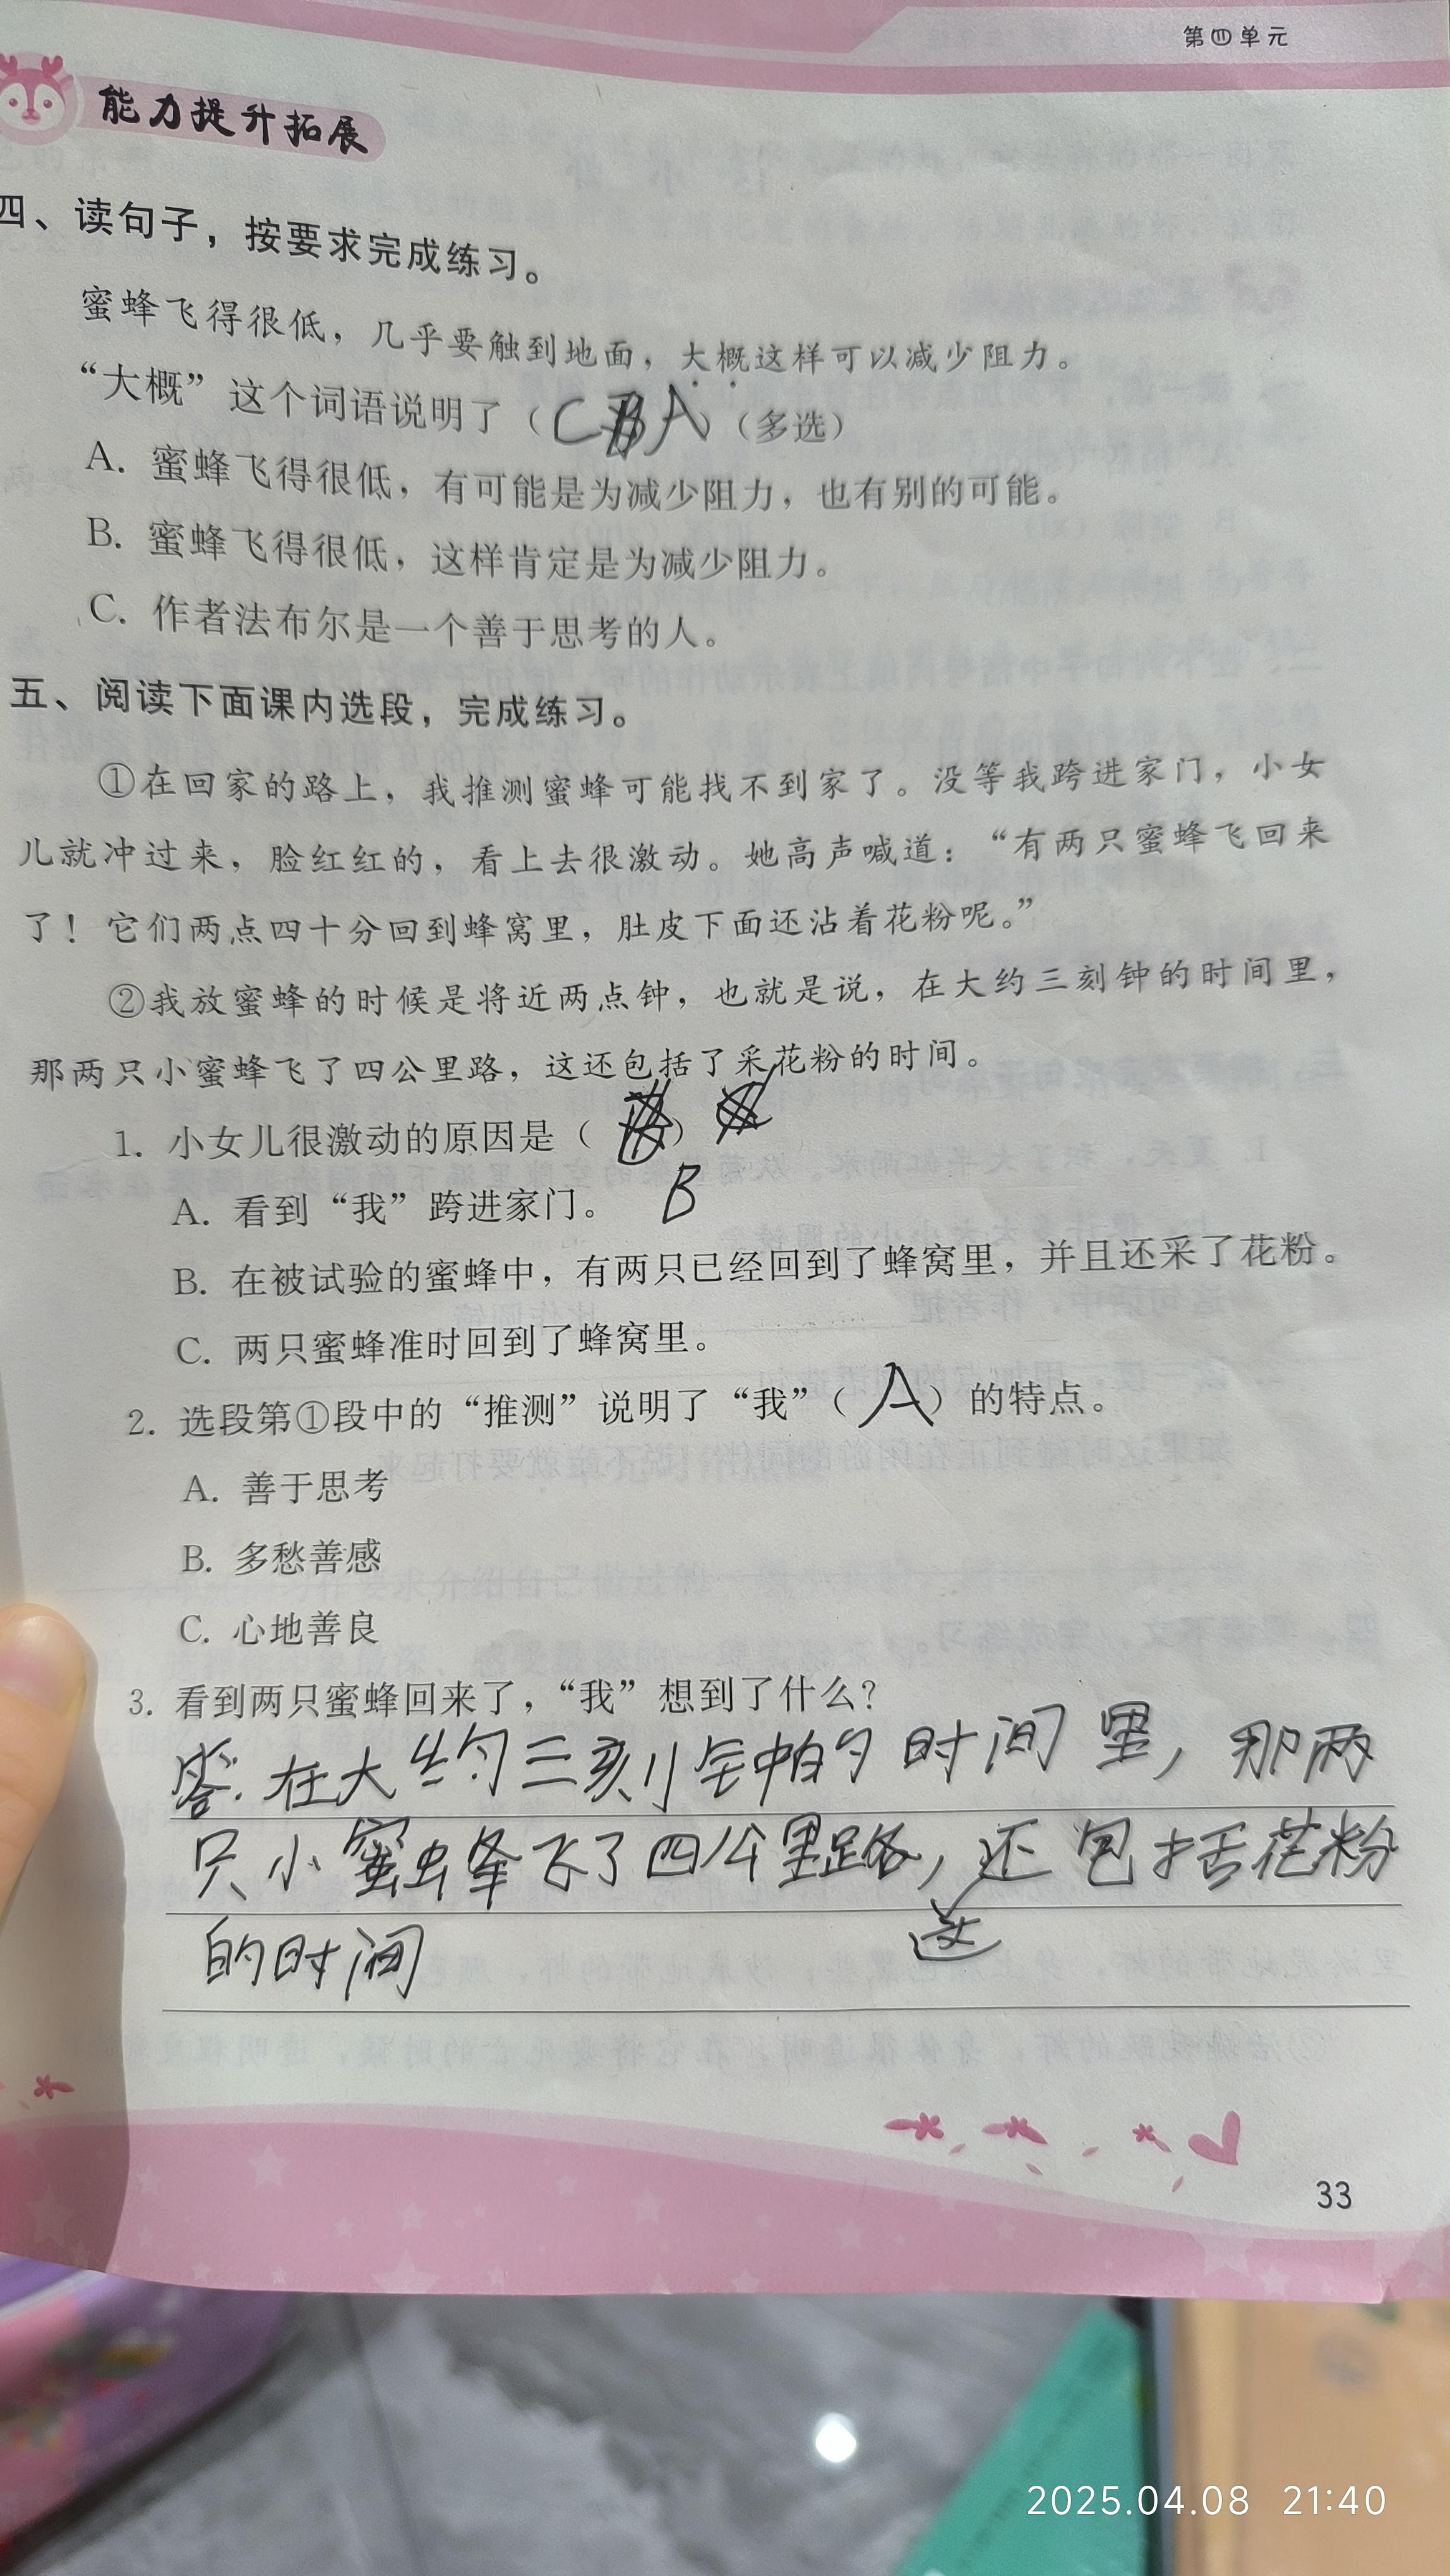 第四单元
能力提升拓展
四、读句子，按要求完成练习。
蜜蜂飞得很低，几乎要触到地面，大概这样可以减少阻力。
“大概”这个词语说明了（CA）（多选）
A. 蜜蜂飞得很低，有可能是为减少阻力，也有别的可能。
B. 蜜蜂飞得很低，这样肯定是为减少阻力。
C. 作者法布尔是一个善于思考的人。
五、阅读下面课内选段，完成练习。
①在回家的路上，我推测蜜蜂可能找不到家了。没等我跨进家门，小女
儿就冲过来，脸红红的，看上去很激动。她高声喊道：“有两只蜜蜂飞回来
了！它们两点四十分回到蜂窝里，肚皮下面还沾着花粉呢。”
②我放蜜蜂的时候是将近两点钟，也就是说，在大约三刻钟的时间里，
那两只小蜜蜂飞了四公里路，这还包括了采花粉的时间。
1. 小女儿很激动的原因是（ ）
B
A. 看到“我”跨进家门。
B. 在被试验的蜜蜂中，有两只已经回到了蜂窝里，并且还采了花粉。
C. 两只蜜蜂准时回到了蜂窝里。
2. 选段第①段中的“推测”说明了“我”（A）的特点。
A. 善于思考
B. 多愁善感
C. 心地善良
3. 看到两只蜜蜂回来了，“我”想到了什么？
答：在大约三刻钟的时间里，那两
只小蜜蜂飞了四公里路，还包括花粉
这
的时间
33
2025.04.08 21:40